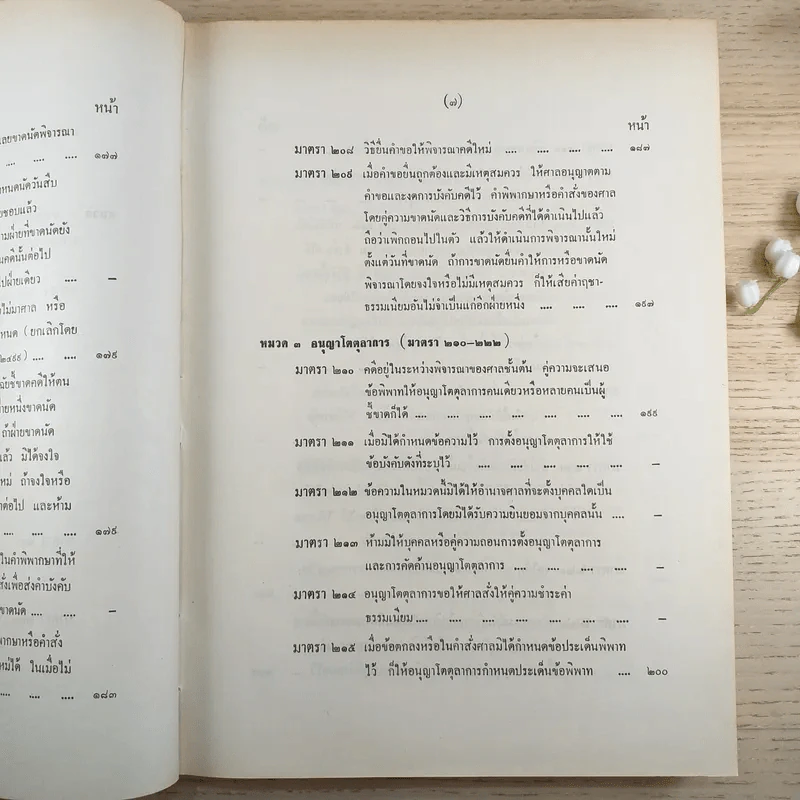 หน้า
เลยขาดนัดพิจารณา
.... .... .... ๑๗๗
าหนดนัดวันสืบ
ยชอบแล้ว
ามฝ่ายที่ขาดนัดยัง
นคดีนั้นต่อไป
ไปฝ่ายเดียว .... —
ไม่มาศาล หรือ
หนด (ยกเลิกโดย
๒๔๙๙) .... .... ๑๗๙
ฉัยชี้ขาดคดีให้ตน
ายหนึ่งขาดนัด
ถ้าฝ่ายขาดนัด
ล้ว มิได้จงใจ
หม่ ถ้าจงใจหรือ
าต่อไป และห้าม
.... .... .... .... ๑๗๙
ในคำพิพากษาที่ให้
สั่งเพื่อส่งคำบังคับ
ขาดนัด .... .... —
พากษาหรือคำสั่ง
หม่ได้ ในเมื่อไม่
.... .... .... .... ๑๘๓
(๗)
หน้า
มาตรา ๒๐๘ วิธียื่นคำขอให้พิจารณาคดีใหม่ .... .... .... .... ๑๘๗
มาตรา ๒๐๙ เมื่อคำขอยื่นถูกต้องและมีเหตุสมควร ให้ศาลอนุญาตตาม
คำขอและงดการบังคับคดีไว้ คำพิพากษาหรือคำสั่งของศาล
โดยคู่ความขาดนัดและวิธีการบังคับคดีที่ได้ดำเนินไปแล้ว
ถือว่าเพิกถอนไปในตัว แล้วให้ดำเนินการพิจารณานั้นใหม่
ตั้งแต่วันที่ขาดนัด ถ้าการขาดนัดยื่นคำให้การหรือขาดนัด
พิจารณาโดยจงใจหรือไม่มีเหตุสมควร ก็ให้เสียค่าฤชา-
ธรรมเนียมอันไม่จำเป็นแก่อีกฝ่ายหนึ่ง .... .... .... ๑๙๗
หมวด ๓ อนุญาโตตุลาการ (มาตรา ๒๑๐–๒๒๒)
มาตรา ๒๑๐ คดีอยู่ในระหว่างพิจารณาของศาลชั้นต้น คู่ความจะเสนอ
ข้อพิพาทให้อนุญาโตตุลาการคนเดียวหรือหลายคนเป็นผู้
ชี้ขาดก็ได้ .... .... .... .... .... .... .... ๑๙๙
มาตรา ๒๑๑ เมื่อมิได้กำหนดข้อความไว้ การตั้งอนุญาโตตุลาการให้ใช้
ข้อบังคับดังที่ระบุไว้ .... .... .... .... .... —
มาตรา ๒๑๒ ข้อความในหมวดนี้มิได้ให้อำนาจศาลที่จะตั้งบุคคลใดเป็น
อนุญาโตตุลาการโดยมิได้รับความยินยอมจากบุคคลนั้น .... —
มาตรา ๒๑๓ ห้ามมิให้บุคคลหรือคู่ความถอนการตั้งอนุญาโตตุลาการ
และการคัดค้านอนุญาโตตุลาการ .... .... .... .... —
มาตรา ๒๑๔ อนุญาโตตุลาการขอให้ศาลสั่งให้คู่ความชำระค่า
ธรรมเนียม .... .... .... .... .... .... .... —
มาตรา ๒๑๕ เมื่อข้อตกลงหรือในคำสั่งศาลมิได้กำหนดข้อประเด็นพิพาท
ไว้ ก็ให้อนุญาโตตุลาการกำหนดประเด็นข้อพิพาท .... ๒๐๐